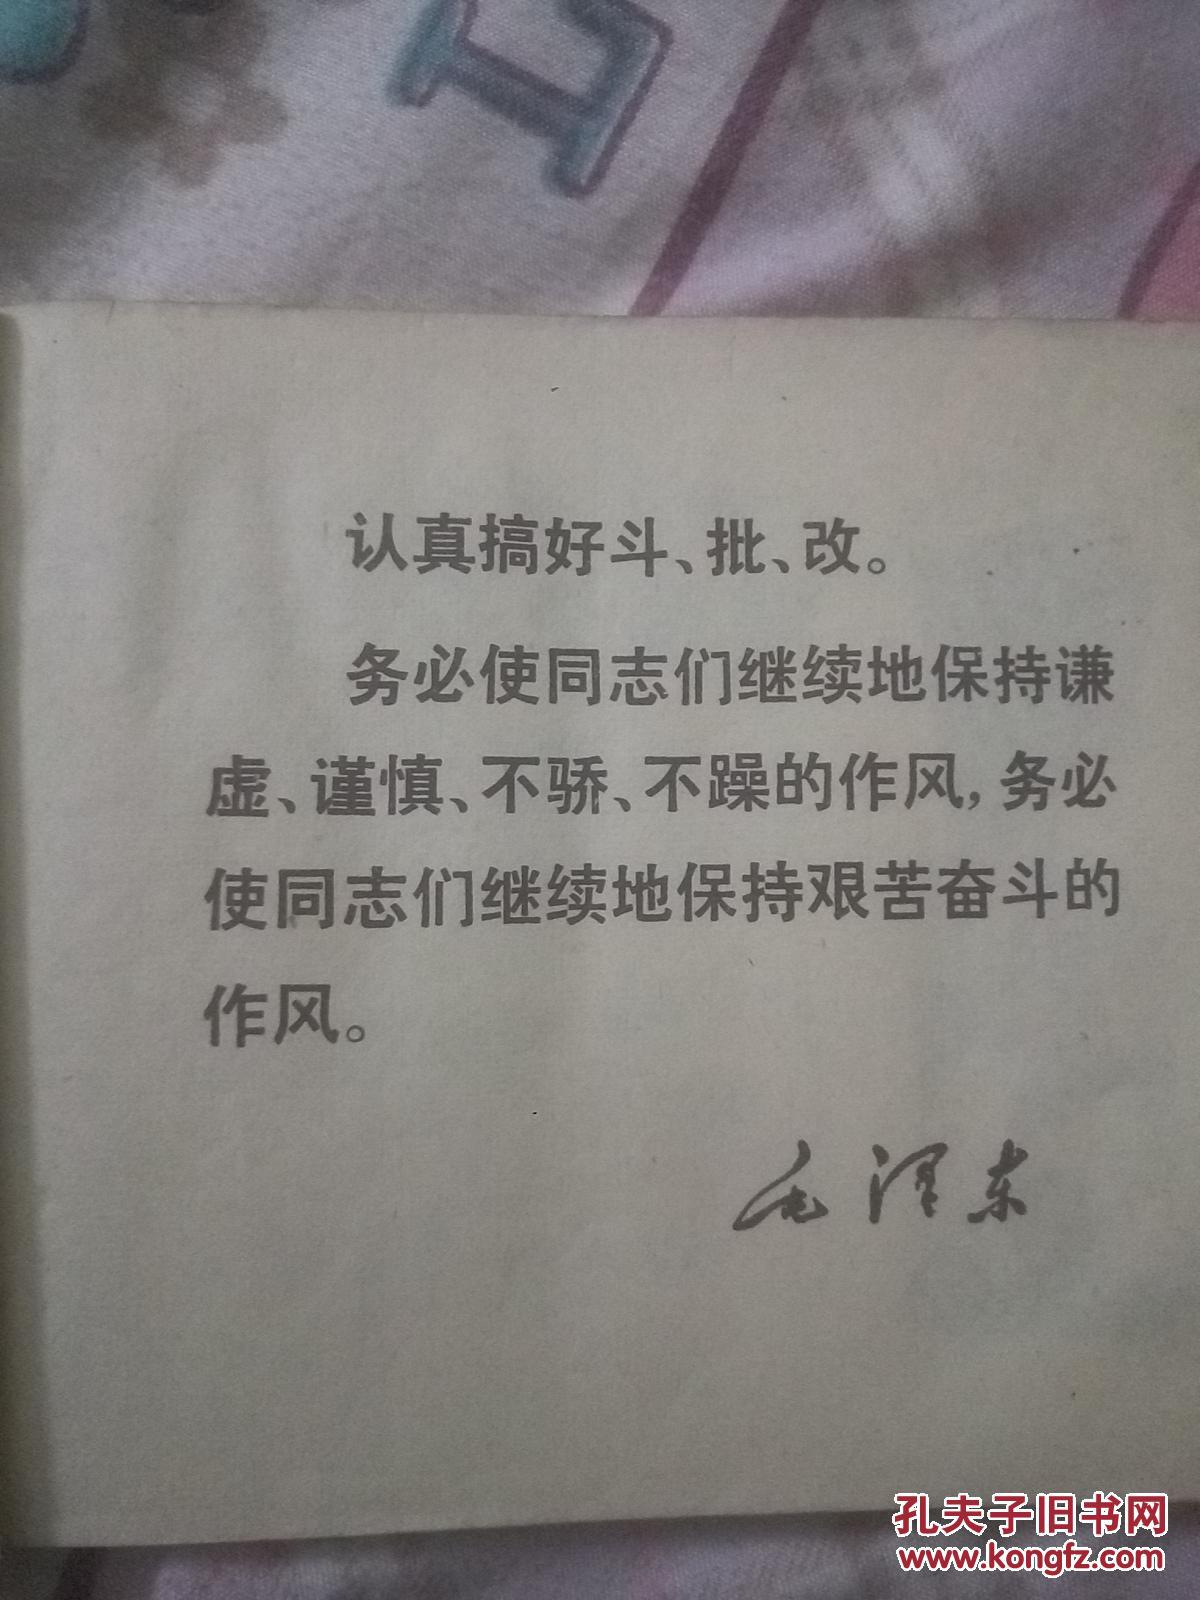 认真搞好斗、批、改。
务必使同志们继续地保持谦
虚、谨慎、不骄、不躁的作风,务必
使同志们继续地保持艰苦奋斗的
作风。
毛泽东
孔夫子旧书网
www.kongfz.com